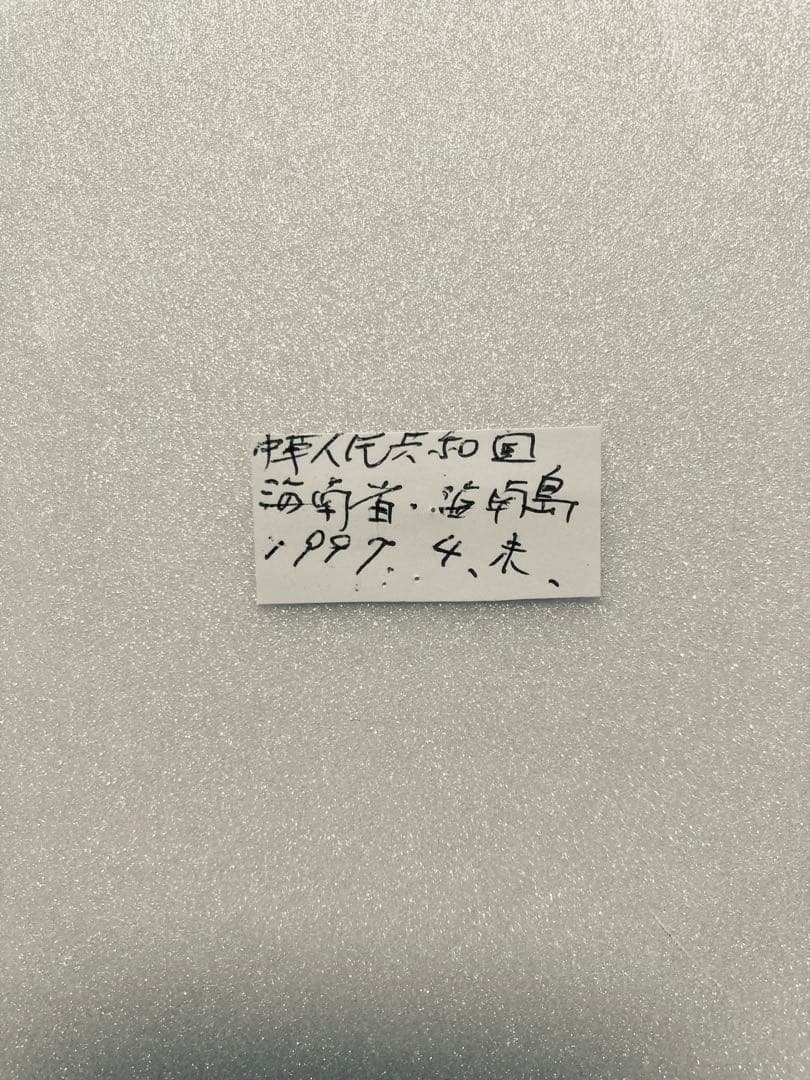 中華人民共和国
海南省.海南島
1997.4、末、